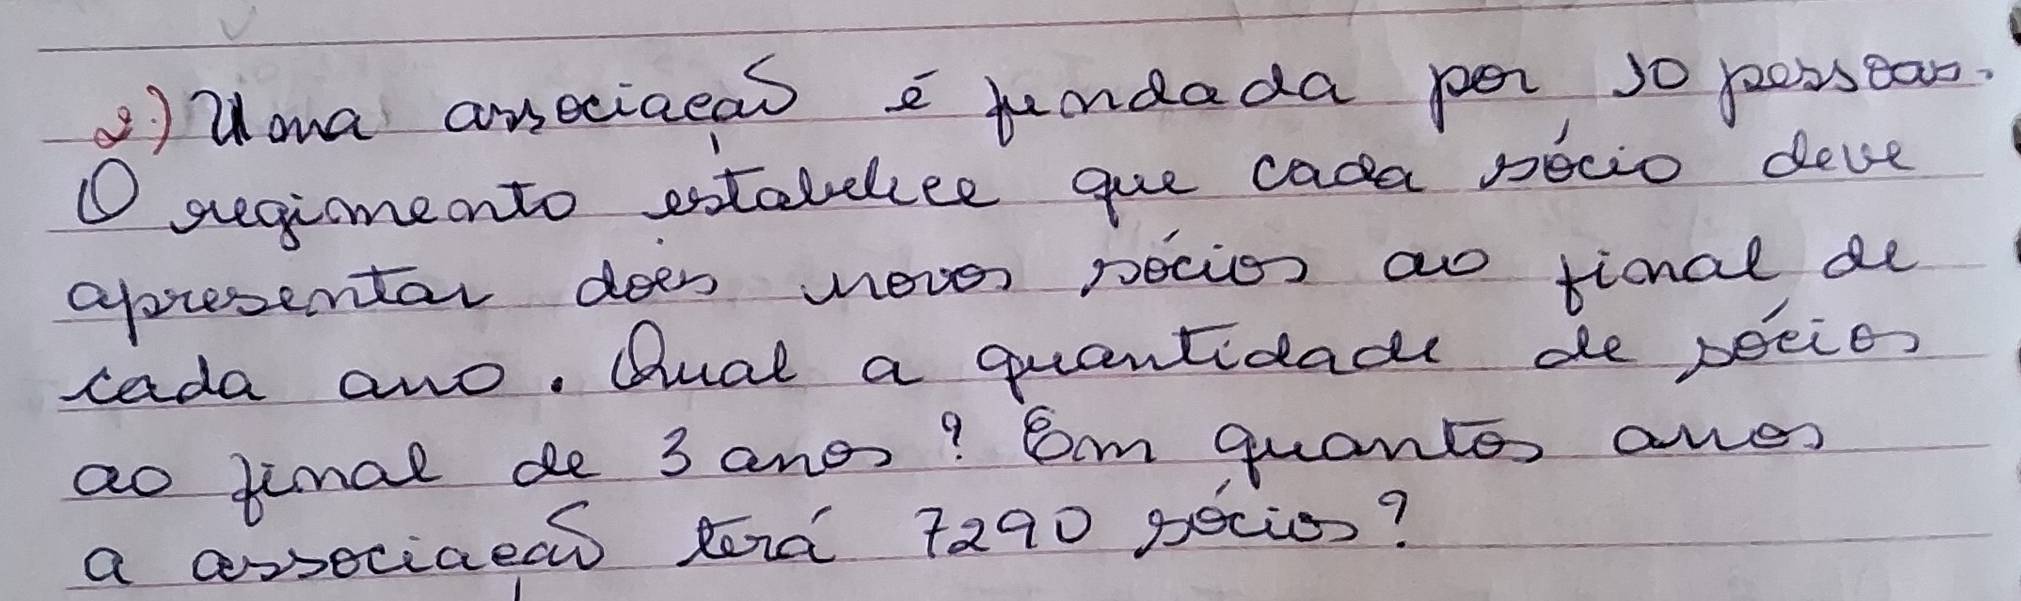 2.) Uma associação é fundada por 10 pessoas.
O regimento estabelece que cada sócio deve
apresentar dois novos sócios ao final de
cada ano. Qual a quantidade de sócios
ao final de 3 anos? Em quantos anos
a associação terá 7290 sócios?